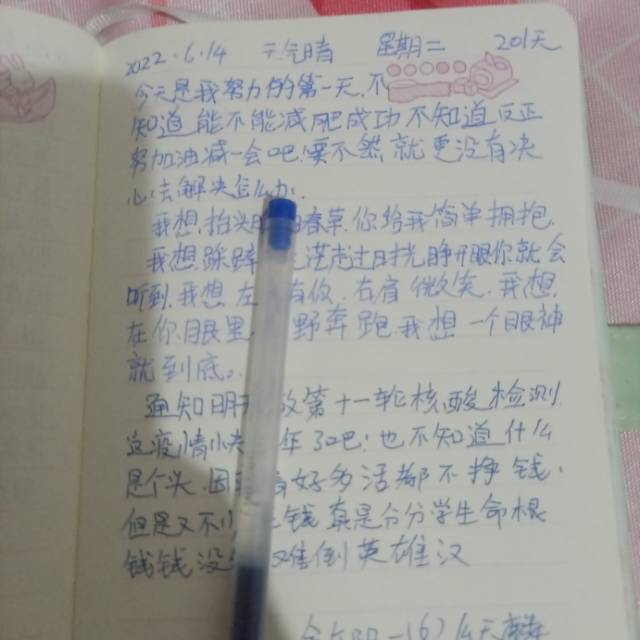 2022.6.14 天气晴 星期二 201天
今天是我努力的第一天.不
知道能不能减肥成功不知道反正
努加油减一会吧.要不然就更没有决
心去解决怎么办.
我想.抬头 的春草.你给我简单拥抱.
我想.踩踩 荡走过时光.睁开眼你就会
听到.我想.左 有你.右肩微笑.我想.
在你眼里. 野奔跑.我想一个眼神
就到底.
通知明 做第十一轮核酸检测.
这疫情小 年了吧.也不知道什么
是个头.因 好多活都不挣钱.
但是又不 钱真是合分学生命根
钱钱没 难倒英雄汉